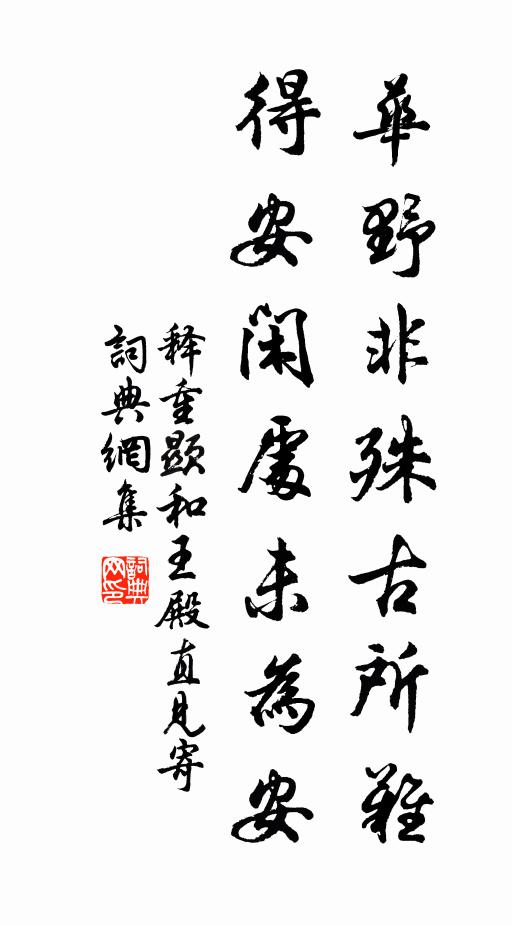 華野非殊古所難
得安閑處未為安
释重顯和王殿直見寄
詞典網集
詞典網印